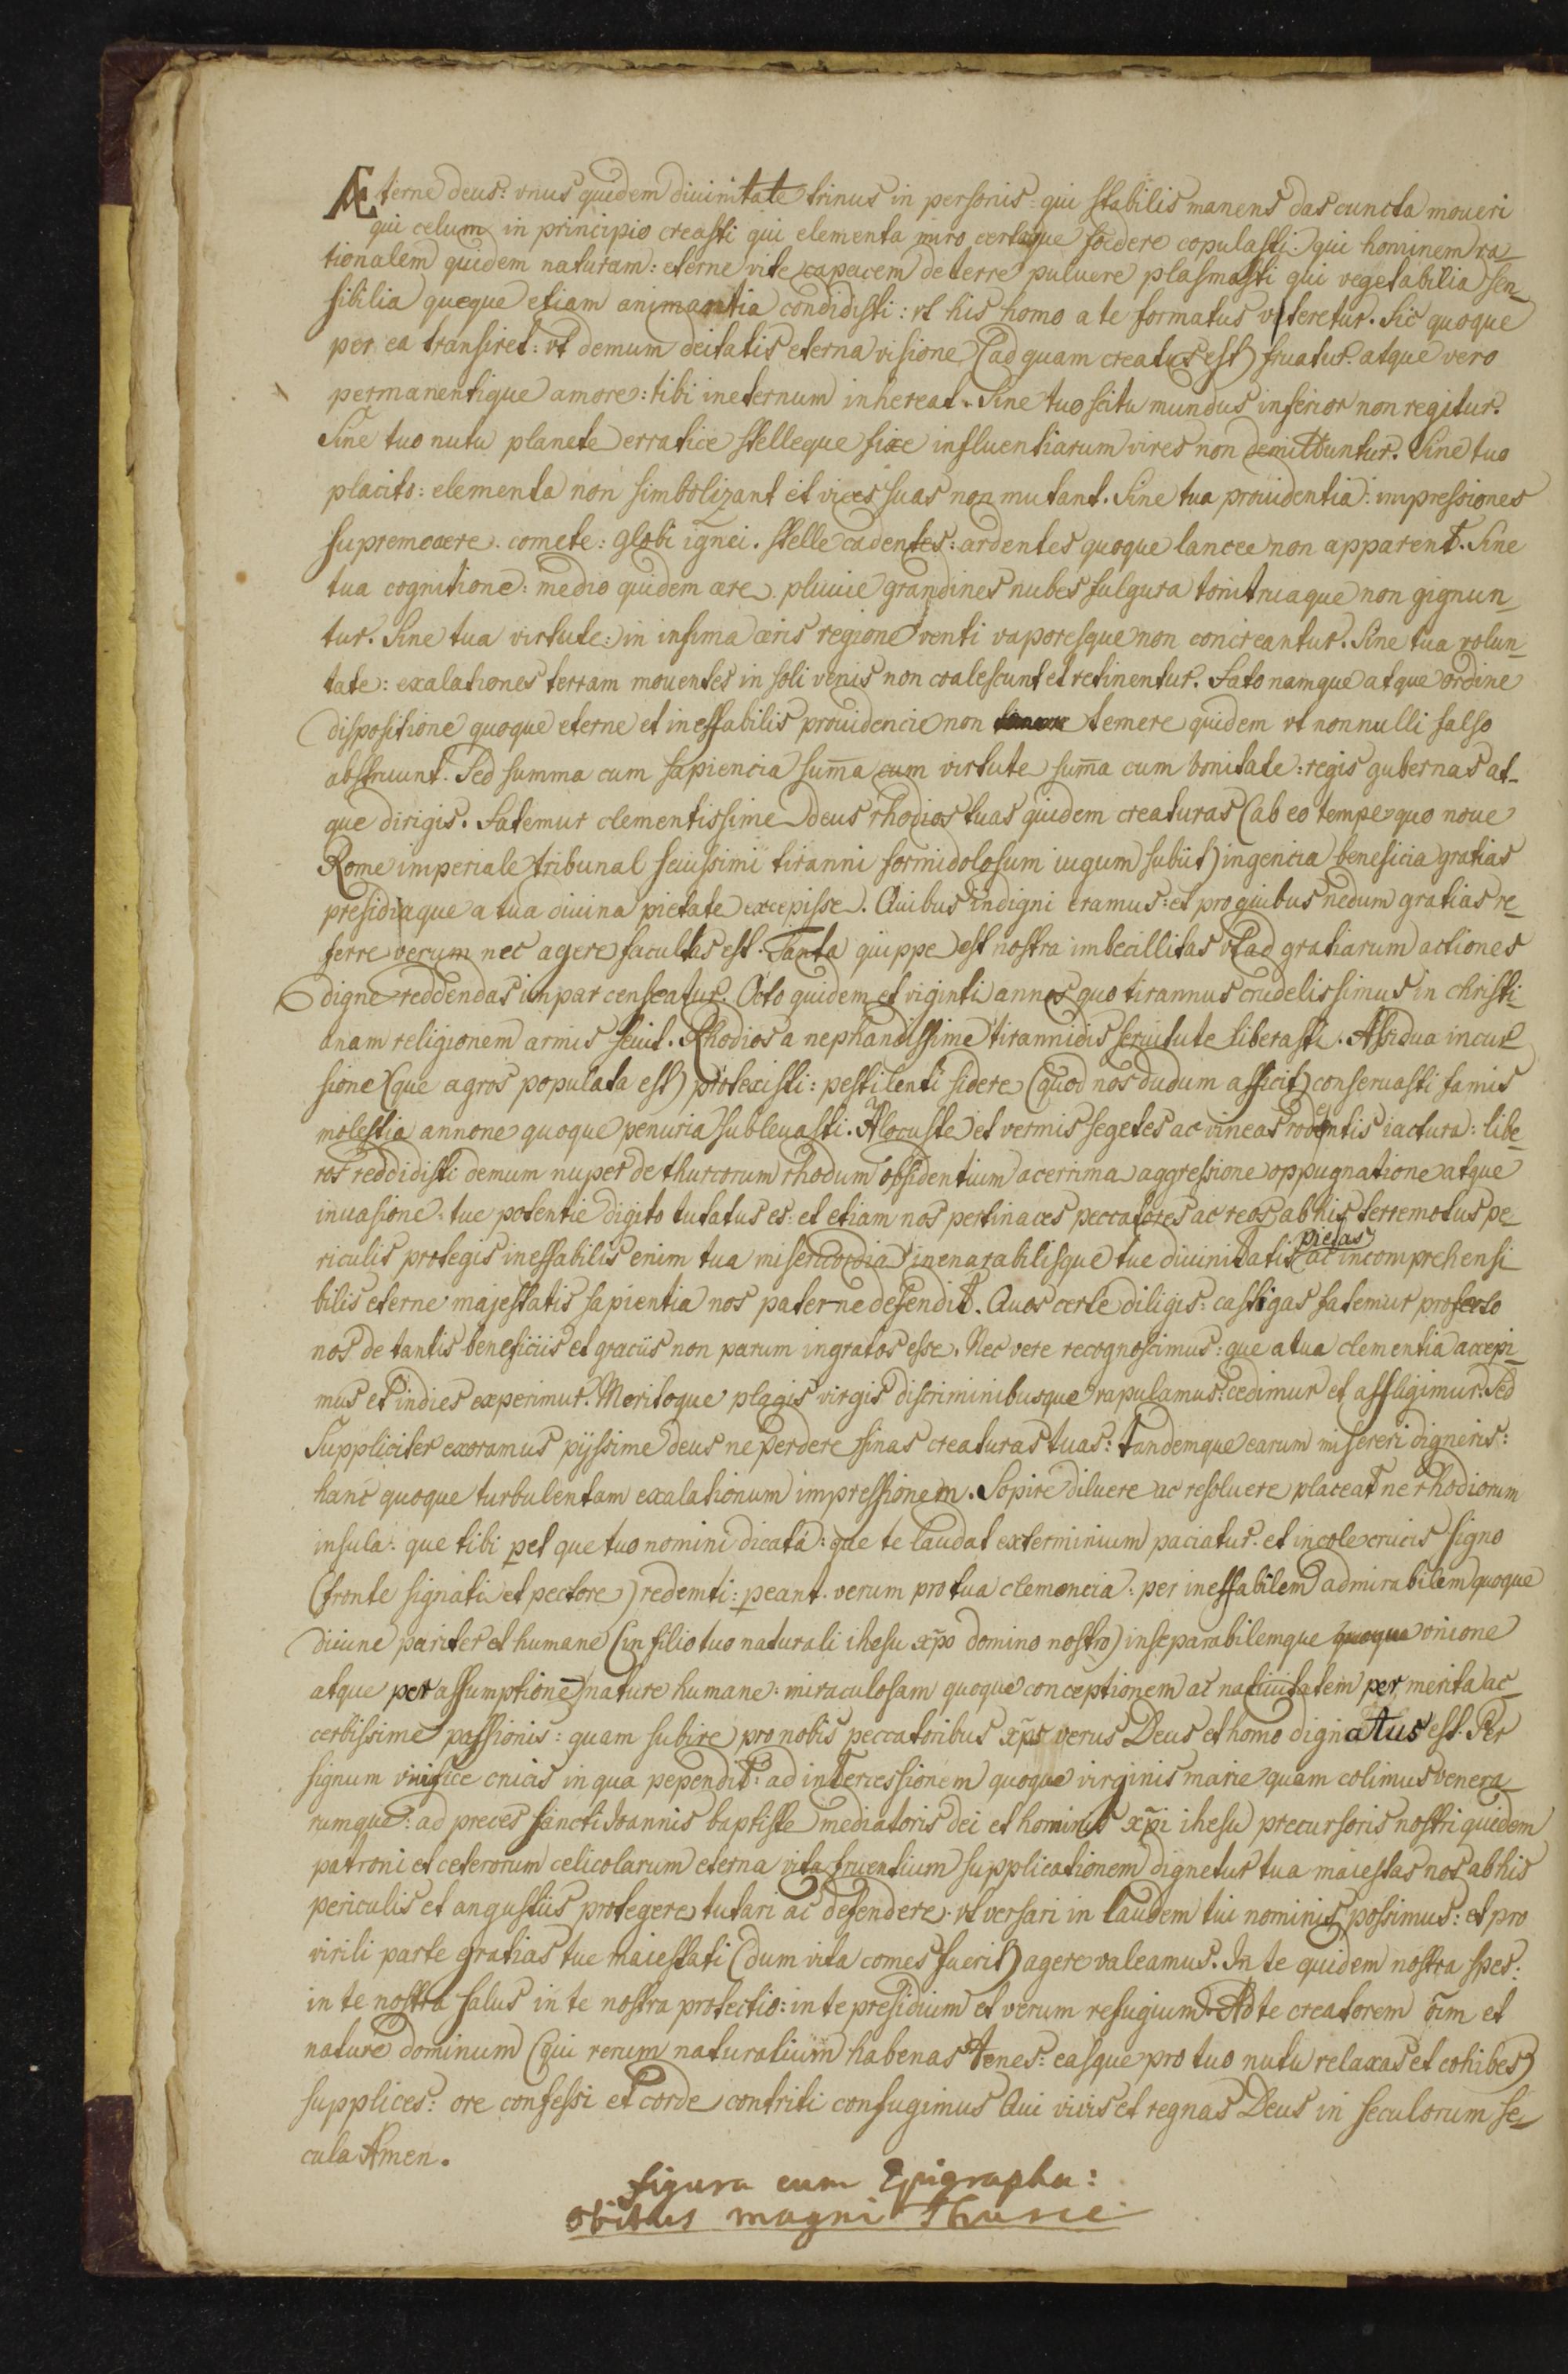 Æterne deus: vnus quidem diuinitate trinus in personis: qui stabilis manens das cuncta moueri
qui celum in principio creasti qui elementa miro certoque foedere copulasti: qui hominem ra-
tionalem quidem naturam: eterne vite capacem de terre puluere plasmasti qui vegetabilia sen-
sibilia queque etiam animantia condidisti: vt his homo a te formatus vteretur. Sic quoque
per ea transiret: vt demum deitatis eterna visione (ad quam creatus est) fruatur. atque vero
permanentique amore: tibi in eternum inhereat. Sine tuo scitu mundus inferior non regitur.
Sine tuo nutu planete erratice stelleque fixe influentiarum vires non demittuntur. Sine tuo
placito: elementa non simbolizant et vices suas non mutant. Sine tua prouidentia: impressiones
supremo aere. comete: globi ignei. stelle cadentes: ardentes quoque lancee non apparent. Sine
tua cognitione: medio quidem aere. pluuie grandines nubes fulgura tonitruaque non gignun-
tur. Sine tua virtute: in infima aeris regione venti vaporesque non concreantur. Sine tua volun-
tate: exalationes terram mouentes in soli venis non coalescunt et retinentur. Fato namque atque ordine
dispositione quoque eterne et ineffabilis prouidencie non temere quidem vt nonnulli falso
abstruunt. Sed summa cum sapiencia sum̄a cum virtute sum̄a cum bonitate: regis gubernas at-
que dirigis. Fatemur clementissime deus rhodios tuas quidem creaturas (ab eo tempe quo noue
Rome imperiale tribunal seuissimi tiranni formidolosum iugum subiit) ingencia beneficia gratias
presidiaque a tua diuina pietate excepisse. Quibus indigni eramus: et pro quibus nedum gratias re-
ferre verum nec agere facultas est. Tanta quippe est nostra imbecillitas vt ad gratiarum actiones
digne reddendas impar censeatur. Octo quidem et viginti annos quo tirannus crudelissimus in christi-
anam religionem armis seuit. Rhodios a nephandissime tirannidis seruitute liberasti. Assidua incur
sione (que agros populata est) protexisti: pestilenti sidere (quod nos dudum afficit) conseruasti famis
molestia annone quoque penuria subleuasti. A locuste et vermis segetes ac vineas rodentis iactura: libe-
ros reddidisti demum nuper de thurcorum rhodum obsidentium acerrima aggressione oppugnatione atque
inuasione. tue potentie digito tutatus es: et etiam nos pertinaces peccatores ac reos ab his terremotus pe
riculis protegis ineffabilis enim tua misericordia inenarabilisque tue diuinitatis pietas ac incomprehensi
bilis eterne majestatis sapientia nos paterne defendit. Quos certe diligis: castigas fatemur profecto
nos de tantis beneficiis et graciis non parum ingratos esse. Nec vere recognoscimus: que a tua clementia accepi-
mus et indies experimur. Meritoque plagis virgis discriminibusque vapulamus: cedimur et affligimur. Sed
Suppliciter exoramus pijssime deus ne perdere sinas creaturas tuas: tandemque earum misereri digneris:
hanc quoque turbulentam exalationum impressionem. Sopire diluere ac resoluere placeat ne rhodiorum
insula: que tibi pet que tuo nomini dicata: que te laudat exterminium paciatur. et incole crucis signo
(fronte signati et pectore) redemti: peant. verum pro tua clemencia: per ineffabilem admirabilem quoque
diuine pariter et humane (in filio tuo naturali ihesu xp̄o domino nostro) inseparabilemque quoque vnione
atque per assumptionē nature humane: miraculosam quoque conceptionem ac natiuitatem per merita ac-
cerbissime passionis: quam subire pro nobis peccatoribus xp̄s verus Deus et homo dignatus est. Per
signum viuifice crucis in qua pependit: ad intercessionem quoque virginis marie quam colimus venera-
rumque: ad preces sancti Ioannis baptiste mediatoris dei et hominis xp̄i ihesu precursoris nostri quidem
patroni et ceterorum celicolarum eterna vita fruentium supplicationem dignetur tua maiestas nos ab his
periculis et angustiis protegere tutari ac defendere. vt versari in laudem tui nominis possimus: et pro
virili parte gratias tue maiestati (dum vita comes fuerit) agere valeamus. In te quidem nostra spes:
in te nostra salus in te nostra protectio: in te presidium et verum refugium. Ad te creatorem om̄ et
nature dominum (qui rerum naturalium habenas tenes: easque pro tuo nutu relaxas et cohibes)
supplices: ore confessi et corde contriti confugimus Qui viuis et regnas Deus in seculorum se-
cula Amen.
figura cum Epigrapha:
Obitus magni Thurce